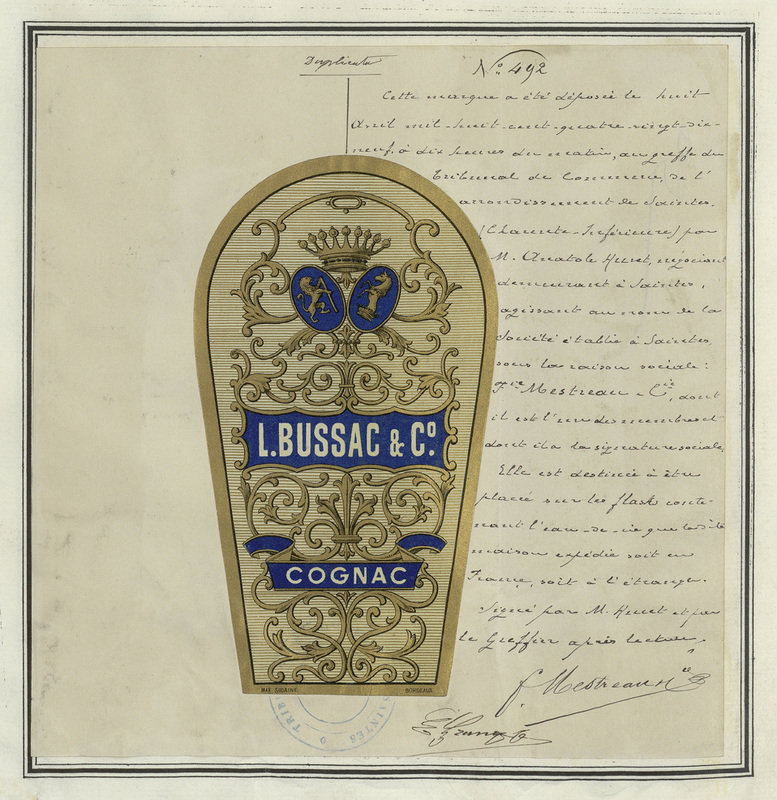 Duplicata
N° 492
Cette marque a été déposée le huit
Avril mil-huit-cent-quatre-vingt-dix-
neuf, à dix heures du matin, au greffe du
Tribunal de Commerce, de l'
arrondissement de Saintes,
(Charente-Inférieure) par
M. Anatole Huet, négociant
demeurant à Saintes,
agissant au nom de la
Société établie à Saintes,
sous la raison sociale:
Fcis Mestreau & Cie, dont
il est l'un des membres et
dont il a la signature sociale.
Elle est destinée à être
placée sur les flask conte-
nant l'eau-de-vie que la dite
maison expédie soit en
France, soit à l'étranger.
Signé par M. Huet et par
le Greffier après lecture.
f. Mestreau & Cie
L. BUSSAC & Co.
COGNAC
BORDEAUX
TRIB
SAINTES